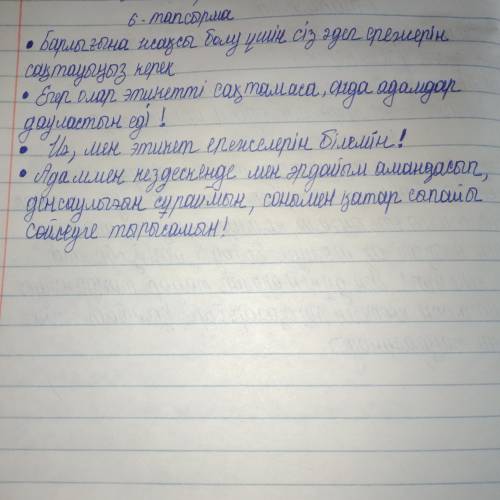 6-тапсырма
• Барлығына жақсы болу үшін сіз әдеп ережерін
сақтауыңыз керек
• Егер олар этикетті сақтамаса, онда адамдар
дауластын еді!
• Иә, мен этикет ережелерін білемін!
• Адаммен кездескенде мен әрдайым амандасып,
денсаулығын сұраймын, сонымен қатар сыпайы
сөйлеуге тырысамын!